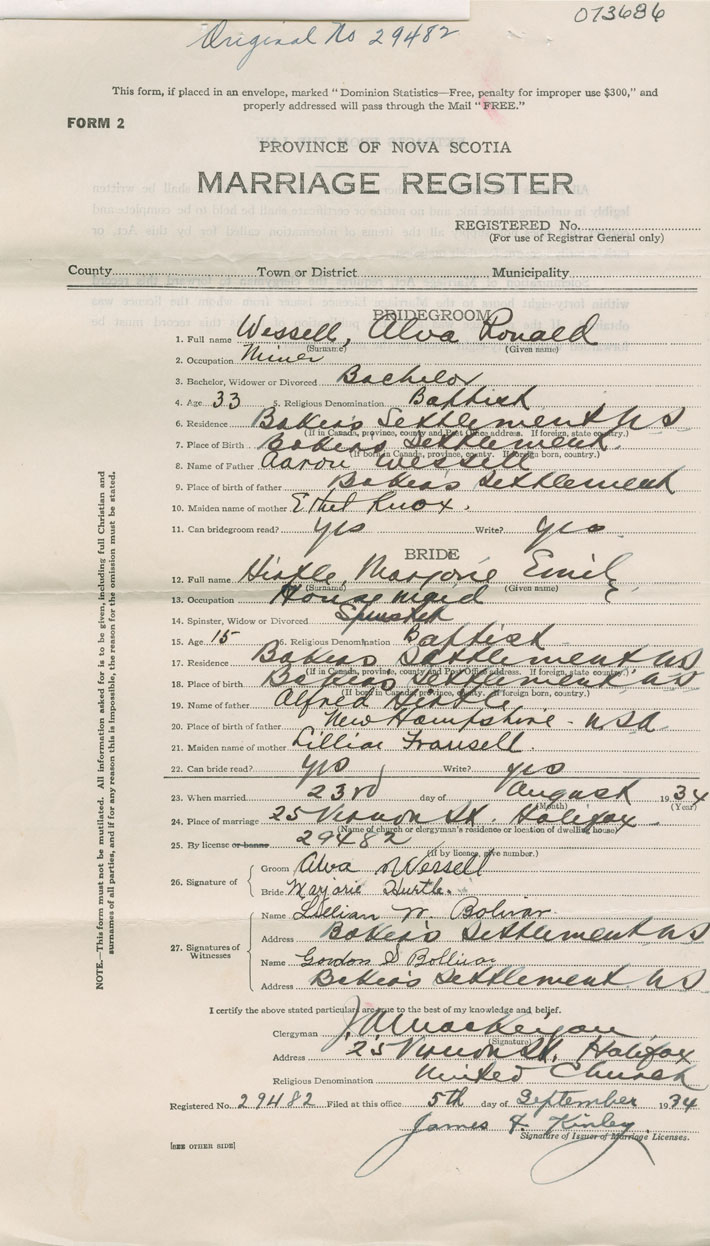 073686
Original No 29482
This form, if placed in an envelope, marked "Dominion Statistics—Free, penalty for improper use $300," and
properly addressed will pass through the Mail "FREE."
FORM 2
PROVINCE OF NOVA SCOTIA
MARRIAGE REGISTER
REGISTERED No.
(For use of Registrar General only)
County Town or District Municipality
BRIDEGROOM
1. Full name Wessell, Alva Ronald
(Surname) (Given name)
2. Occupation Miner
3. Bachelor, Widower or Divorced Bachelor
4. Age 33 5. Religious Denomination Baptist
6. Residence Baker's Settlement NS
(If in Canada, province, county and Post Office address. If foreign, state country.)
7. Place of Birth Bakers Settlement.
(If born in Canada, province, county. If foreign born, country.)
8. Name of Father Aaron Wessell
9. Place of birth of father Baker's Settlement
10. Maiden name of mother Ethel Knox.
11. Can bridegroom read? yes Write? yes
BRIDE
12. Full name Hirtle, Marjorie
(Surname) (Given name)
13. Occupation House maid
14. Spinster, Widow or Divorced Spinster
15. Age 15 16. Religious Denomination Baptist
17. Residence Bakers Settlement NS
(If in Canada, province, county and Post Office address. If foreign, state country.)
18. Place of birth Bakers Settlement NS
(If born in Canada, province, county. If foreign born, country.)
19. Name of father Alfred Hirtle
20. Place of birth of father New Hampshire - USA
21. Maiden name of mother Lillian
22. Can bride read? yes Write? yes
23. When married 23rd day of August 1934
(Month) (Year)
24. Place of marriage 25 Vernon St. Halifax
(Name of church or clergyman's residence or location of dwelling house)
25. By license or banns 29482
(If by licence, give number.)
26. Signature of Groom Alva Wessell
Bride Marjorie Hirtle.
27. Signatures of Witnesses Name Lillian W. Bolivar
Address Baker's Settlement NS
Name Gordon S Bollivar
Address Baker's Settlement NS
I certify the above stated particulars are true to the best of my knowledge and belief.
Clergyman
(Signature)
Address 25 Vernon St, Halifax
Religious Denomination United Church
Registered No. 29482 Filed at this office 5th day of September 1934
James F. Kinley
Signature of Issuer of Marriage Licenses.
[SEE OTHER SIDE]
NOTE.—This form must not be mutilated. All information asked for is to be given, including full Christian and
surnames of all parties, and if for any reason this is impossible, the reason for the omission must be stated.